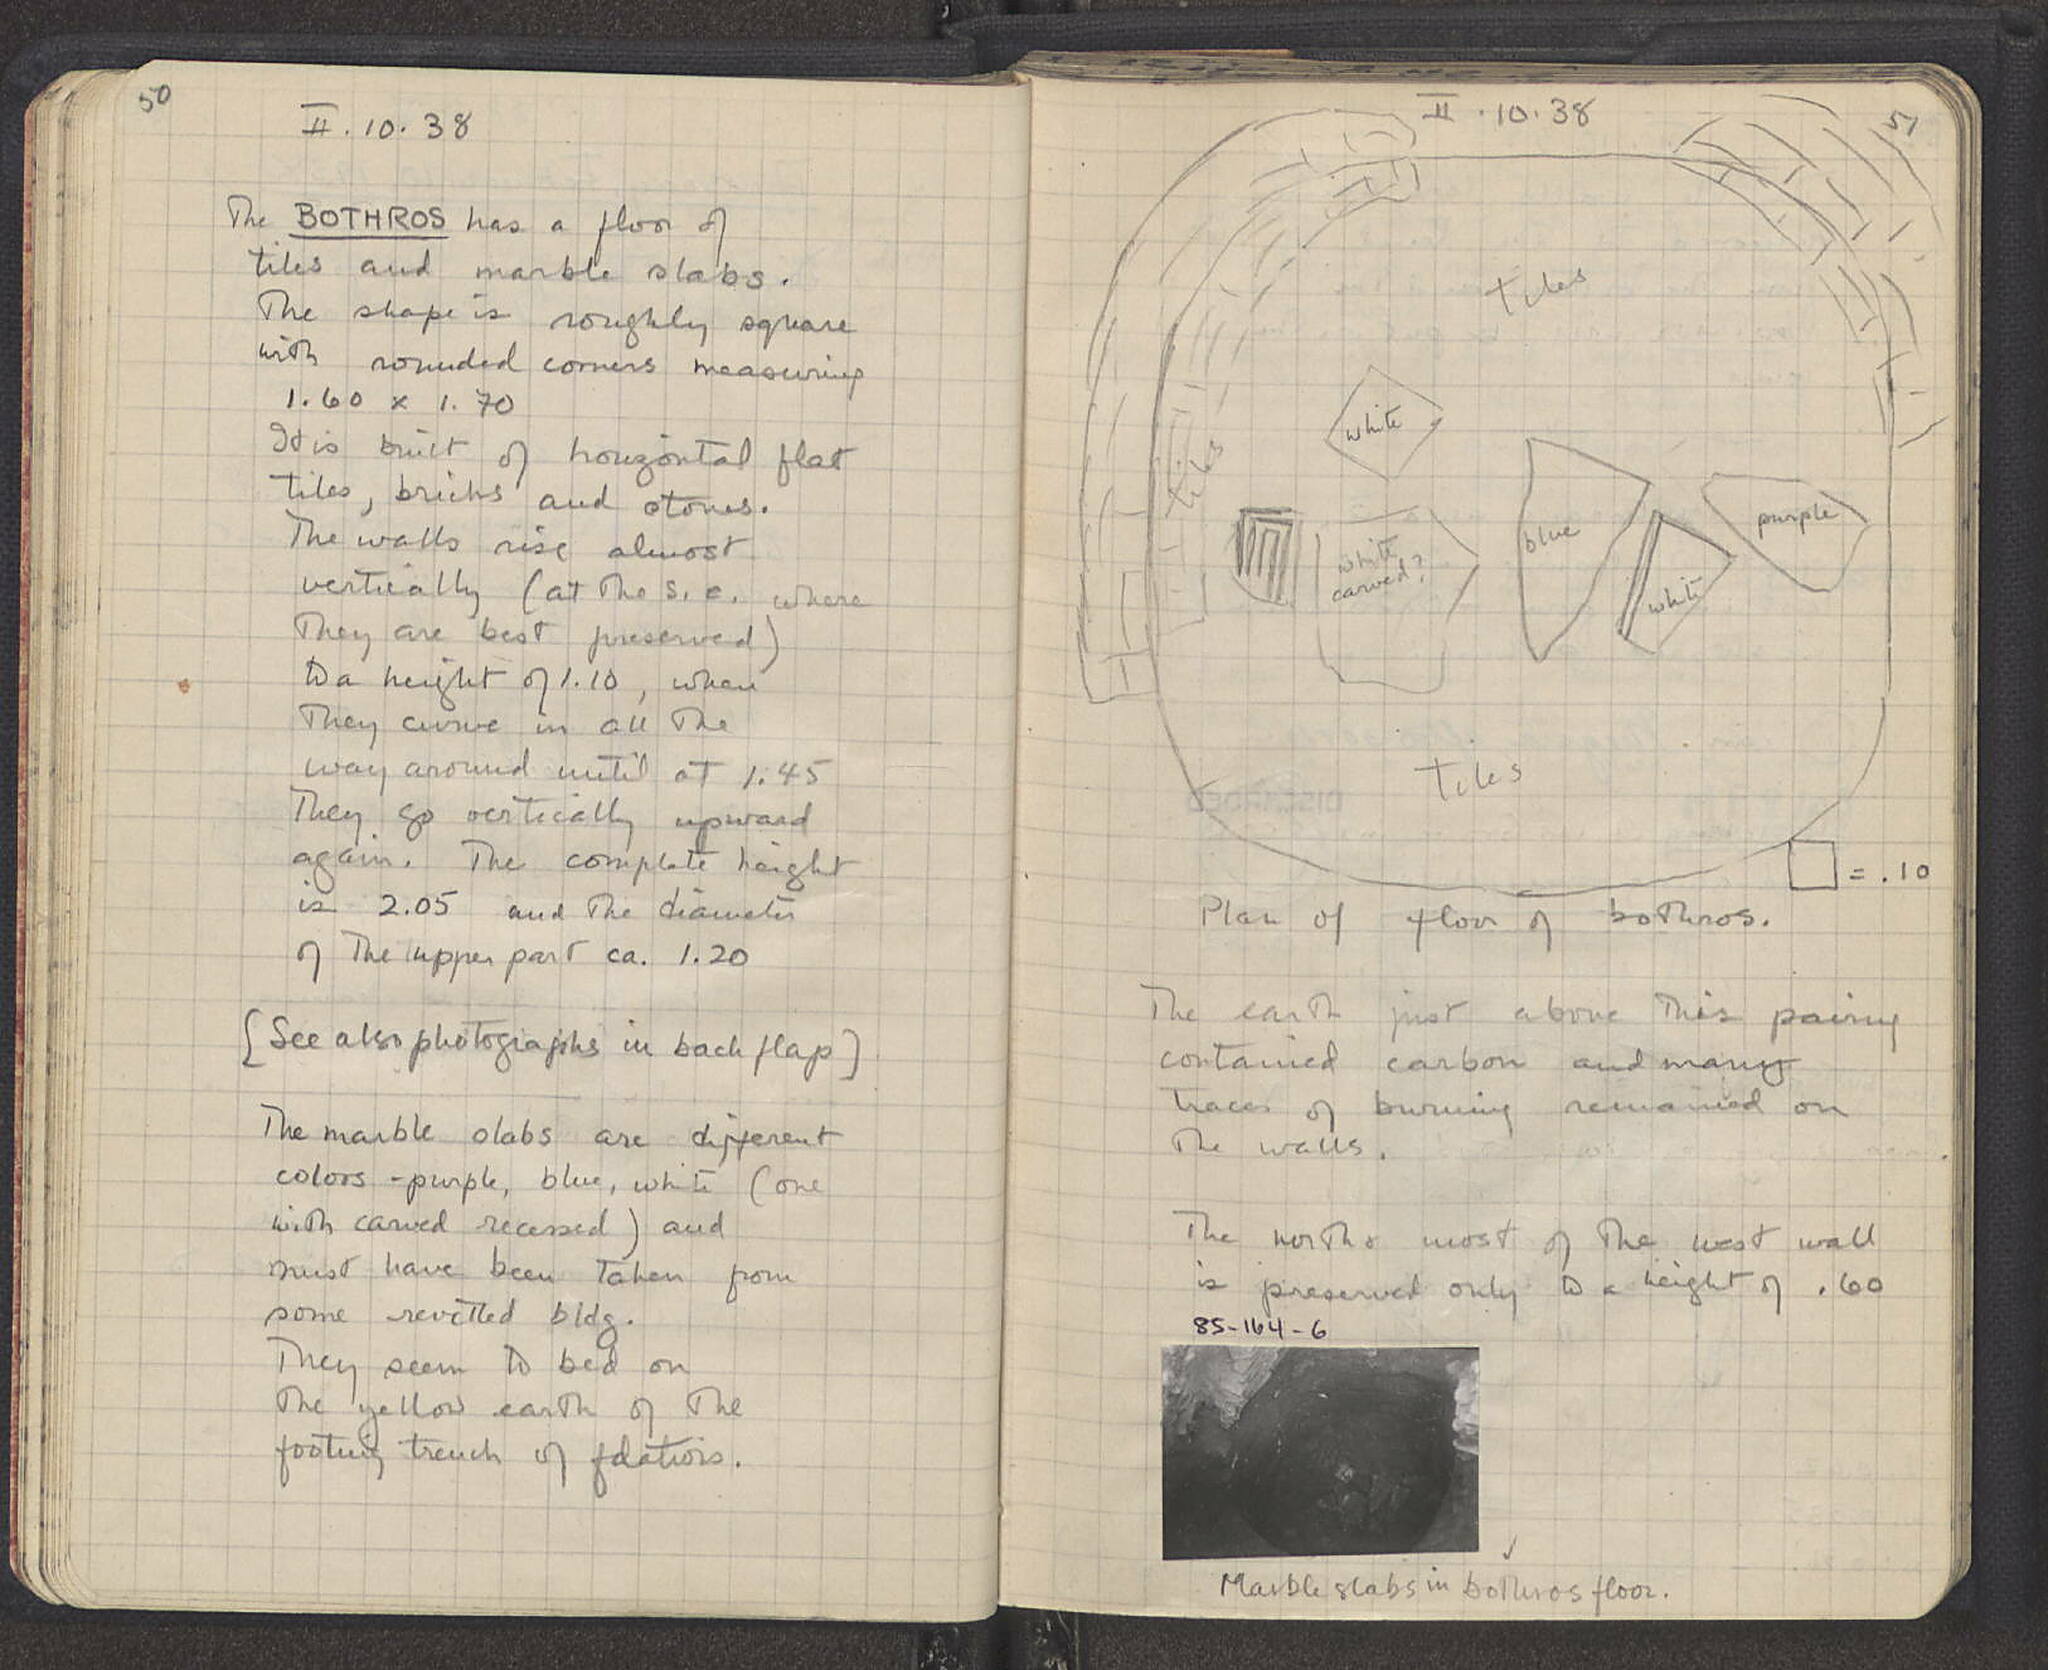 50
II. 10. 38
The BOTHROS has a floor of
tiles and marble slabs.
The shape is roughly square
with rounded corners measuring
1.60 x 1.70
It is built of horizontal flat
tiles, bricks and stones.
The walls rise almost
vertically (at the s. e. where
they are best preserved)
to a height of 1.10, when
they curve in all the
way around until at 1.45
they go vertically upward
again. The complete height
is 2.05 and the diameter
of the upper part ca. 1.20
[See also photographs in back flap]
The marble slabs are different
colors - purple, blue, white (one
with carved recessed) and
must have been taken from
some revetted bldg.
They seem to bed on
the yellow earth of the
footing trench of fdations.
II. 10. 38
51
tiles
white
tiles
white
carved?
blue
white
purple
tiles
= .10
Plan of floor of bothros.
The earth just above this paving
contained carbon and many
traces of burning remained on
the walls.
The north most of the west wall
is preserved only to a height of .60
85-164-6
Marble slabs in bothros floor.